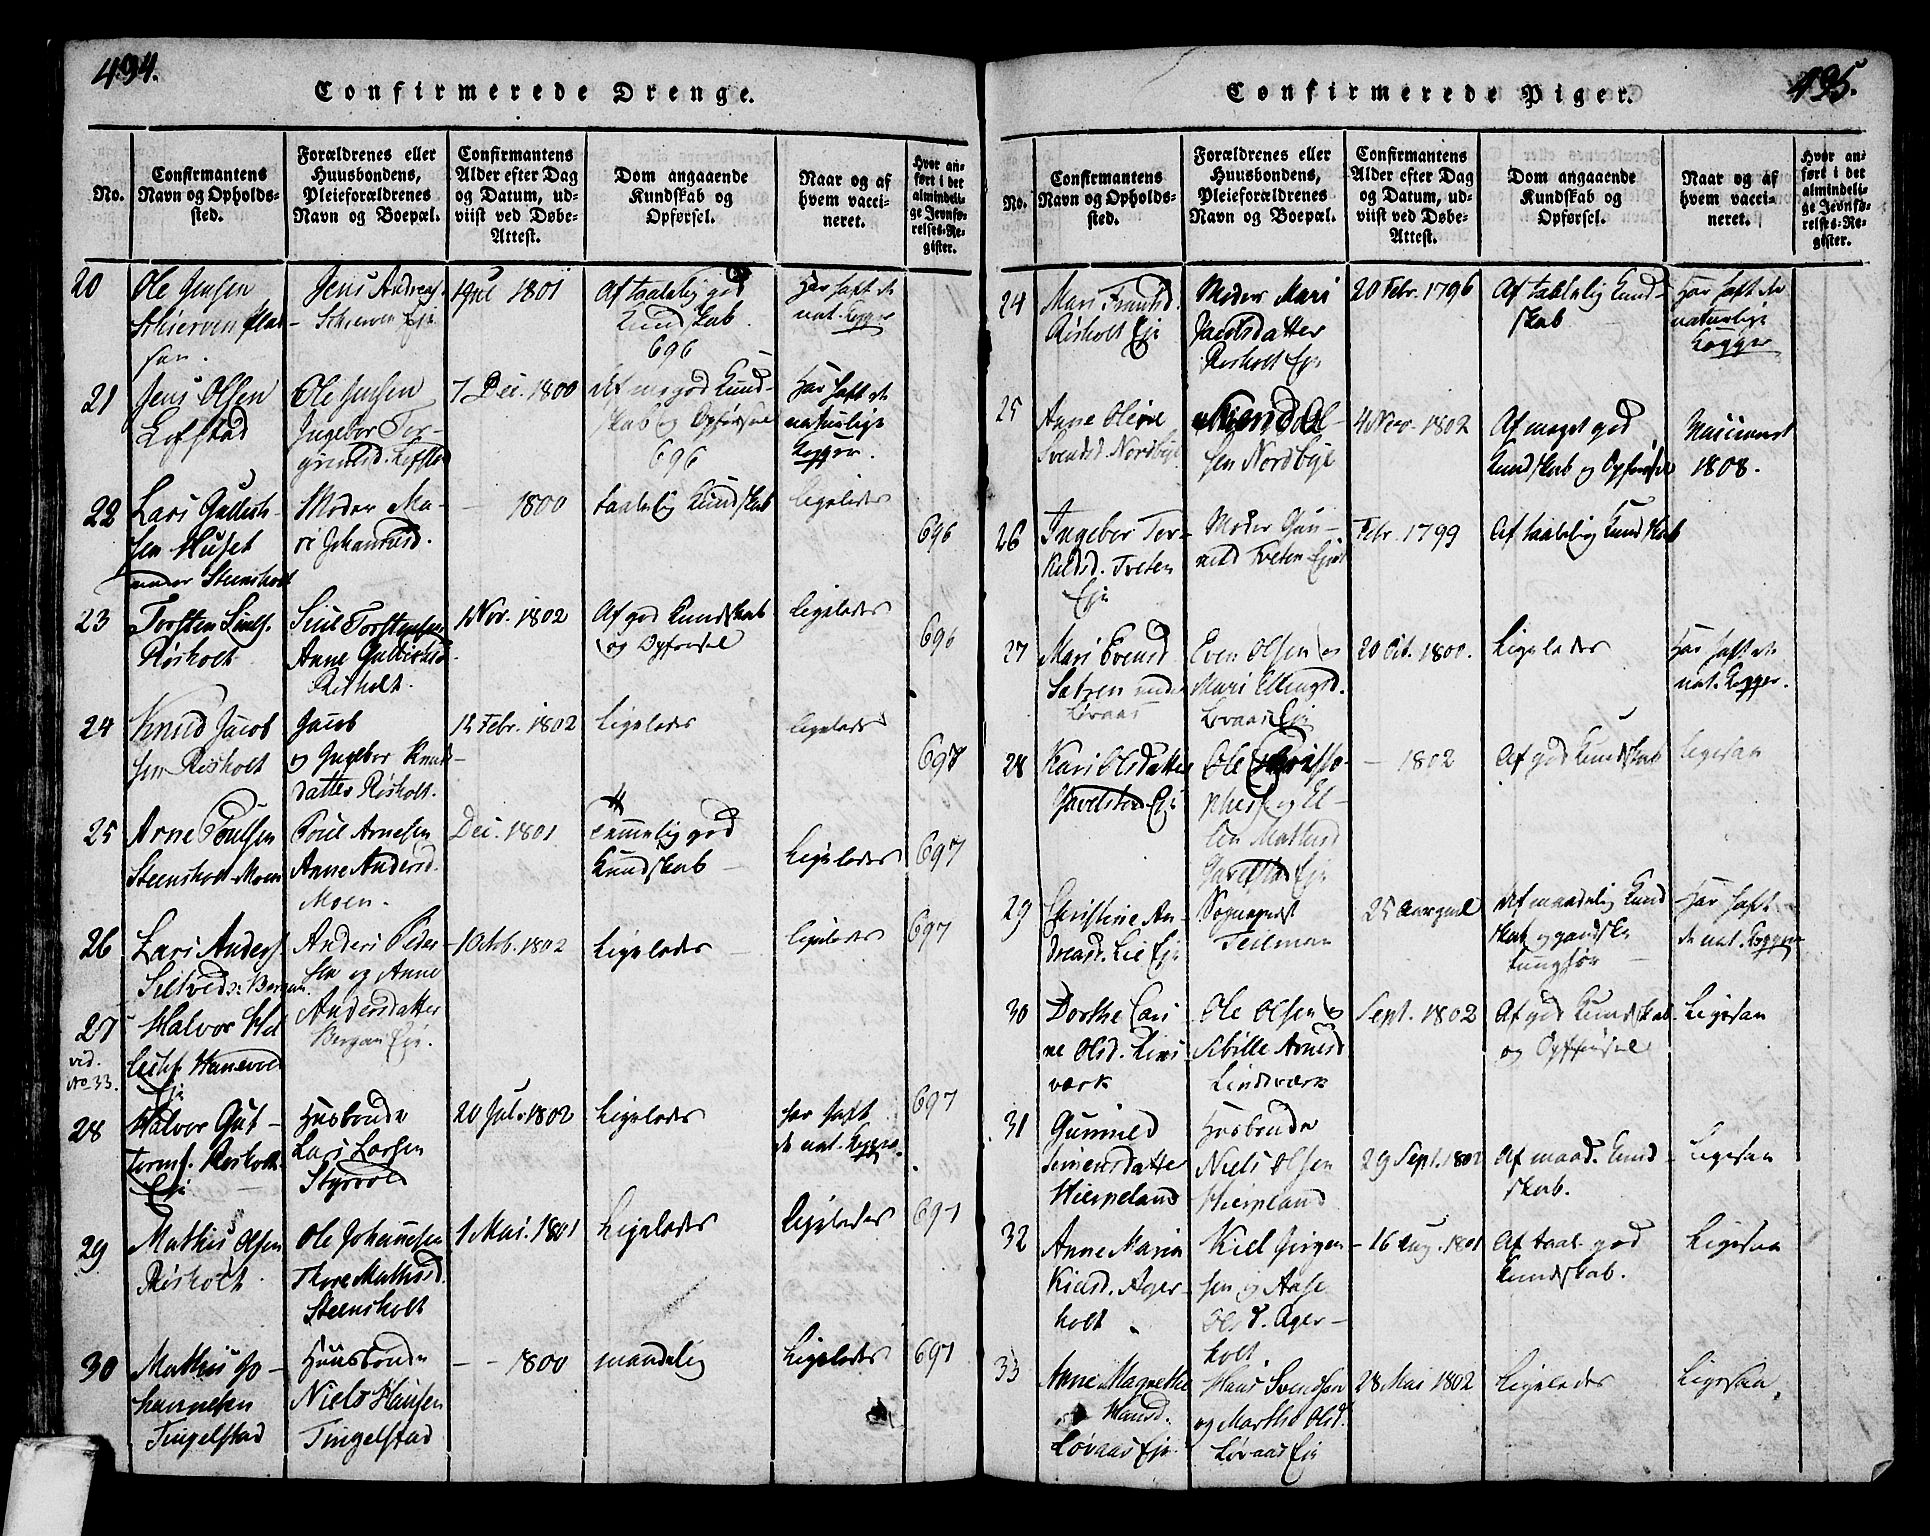 494.
Confirmerede Drenge.
No.
Confirmantens
Navn og Opholds-
sted.
Forældrenes eller
Huusbondens,
Pleieforældrenes
Navn og Boepæl.
Confirmantens
Alder efter Dag
og Datum, ud-
viist ved Døbe-
Attest.
Dom angaaende
Kundskab og
Opførsel.
Naar og af
hvem vacci-
neret.
Hvor an-
ført i det
almindeli-
ge Jevnfø-
relses-Re-
gister.
20
Ole Jensen
Jens Andreas
Jul 1801
Af taalelig god
Kundskab
696
Har haft de
nat. Kopper
21
Jens Olsen
Lofstad
Ole Jensen
Ingebor Tor-
7 Dec. 1800
Af meget god Kund-
skab og Opførsel
696
Har haft de
naturlige
Kopper.
22
Lars
sen Huset
under Steensholt
Moder Ma-
ri Johannesd.
- 1800
taalelig Kundskab
ligeledes
696
23
Torsten
Risholt
Torstensen
Anne
Risholt.
1 Nov. 1802
Af god Kundskab
og Opførsel
ligeledes
696
24
Knud Jacob
sen Risholt
Jacob
og Ingebor Knuds
datter Risholt.
12 Febr. 1802
Ligeledes
ligeledes
697
25
Arne Poulsen
Steensholt Moen
Poul Arnesen
Anne Andersd.
Moen.
Dec. 1801
Temmelig god
Kundskab
Ligeledes
697
26
Lars Anders.
Anders Peder
sen og Anne
Andersdatter
Bergan Eje.
1 Octob. 1802
Ligeledes
ligeledes
697
27
ved.
No 33.
Halvor
Eje
28
Halvor Gut-
torms. Risholt
Eje
Husbonde
Lars Larsen
Styrvold
20 Jul. 1802
Ligeledes
har haft
de nat. Kopper.
697
29
Mathis Olsen
Risholt
Ole Johannesen
Thore Mathisd.
Steensholt
1 Mai. 1801
Ligeledes
ligeledes
697
30
Mathis Jo-
hannesen
Tingelstad
Huusbonde
Niels Hansen
Tingelstad
- - 1800
maadelig
Ligeledes
697
495.
Confirmerede Piger.
No.
Confirmantens
Navn og Opholds-
sted.
Forældrenes eller
Huusbondens,
Pleieforældrenes
Navn og Boepæl.
Confirmantens
Alder efter Dag
og Datum, ud-
viist ved Døbe-
Attest.
Dom angaaende
Kundskab og
Opførsel.
Naar og af
hvem vacci-
neret.
Hvor an-
ført i det
almindeli-
ge Jevnfø-
relses-Re-
gister.
24
Mari
Risholt Eje
Moder Mari
Jacobsdatter
Risholt Eje
20 Febr. 1796
Af taalelig Kund-
skab
Har haft de
naturlige
Kopper
25
Anne Oline
Svendsd. Nordbye
Svend Ol-
sen Nordbye
4 Nov. 1802
Af meget god
Kundskab og Opførsel
Vaccineret
1808.
26
Ingebor Tor-
kildsd. Tveten
Eje
Moder Gun-
nild Tveten Eje
Febr. 1799
Af taalelig Kundskab
27
Mari Evensd
Sætren under
Løvaas
Even Olsen og
Mari Ellingsd.
Løvaas Eje
20 Oct. 1800.
Ligeledes
Har haft de
nat. Kopper.
28
Kari Olsdatter
Gavelstad Eje
Ole Christo-
phers. og El-
len Mathisd
Gavelstad Eje
- 1802
Af god Kundskab
ligesaa
29
Christine An-
dreasd. Lie Eje
Sognepræst
Teilman
25 Aar gml
Af maadelig Kund
skab og ganske
tunghør
Har haft
de nat. Kopper
30
Dorthe Cari
ne Olsd. Linds
værk
Ole Olsen og
Sibille Arnesd
Lindsværk
Sept. 1802
Af god Kundskab
og Opførsel
Ligesaa
31
Gunnild
Simensdatter
Hierpeland
Husbonde
Niels Olsen
Hierpeland
29 Sept. 1802
Af maad. Kund
skab.
Ligesaa
32
Anne Maria
Kielsd. Ager-
holt
Kiel Jørgen-
sen og Aase
Olsd. Ager-
holt
16 Aug. 1801
Af taal. god
Kundskab.
Ligesaa
33
Anne Magrethe
Hansd.
Løvaas Eje
Hans Svendsen
og Marthe Olsd.
Løvaas Eje
28 Mai 1802
Ligeledes
Ligesaa